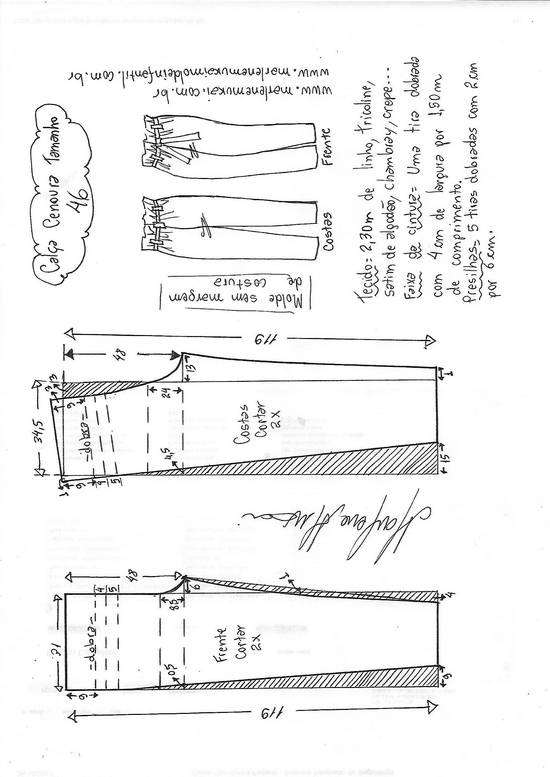 Calça Cenoura Tamanho
46
www.marlenemukaimoldeinfantil.com.br
www.marlenemukai.com.br
Frente
Costas
Molde sem margem
de costura
Tecido= 2,30m de linho, tricoline,
satim de algodão, chambray, crepe...
Faixa de cintura= Uma tira dobrada
com 4 cm de largura por 1,80m
de comprimento.
Presilhas= 5 tiras dobradas com 2 cm
por 6 cm.
119
48
3
3
13
24
34,5
9
-dobra-
4,5
Costas
Cortar
2x
1
15
1
9
4
5
48
4
5
6
8,5
1
4
-dobra-
Frente
Cortar
2x
0,5
9
9
119